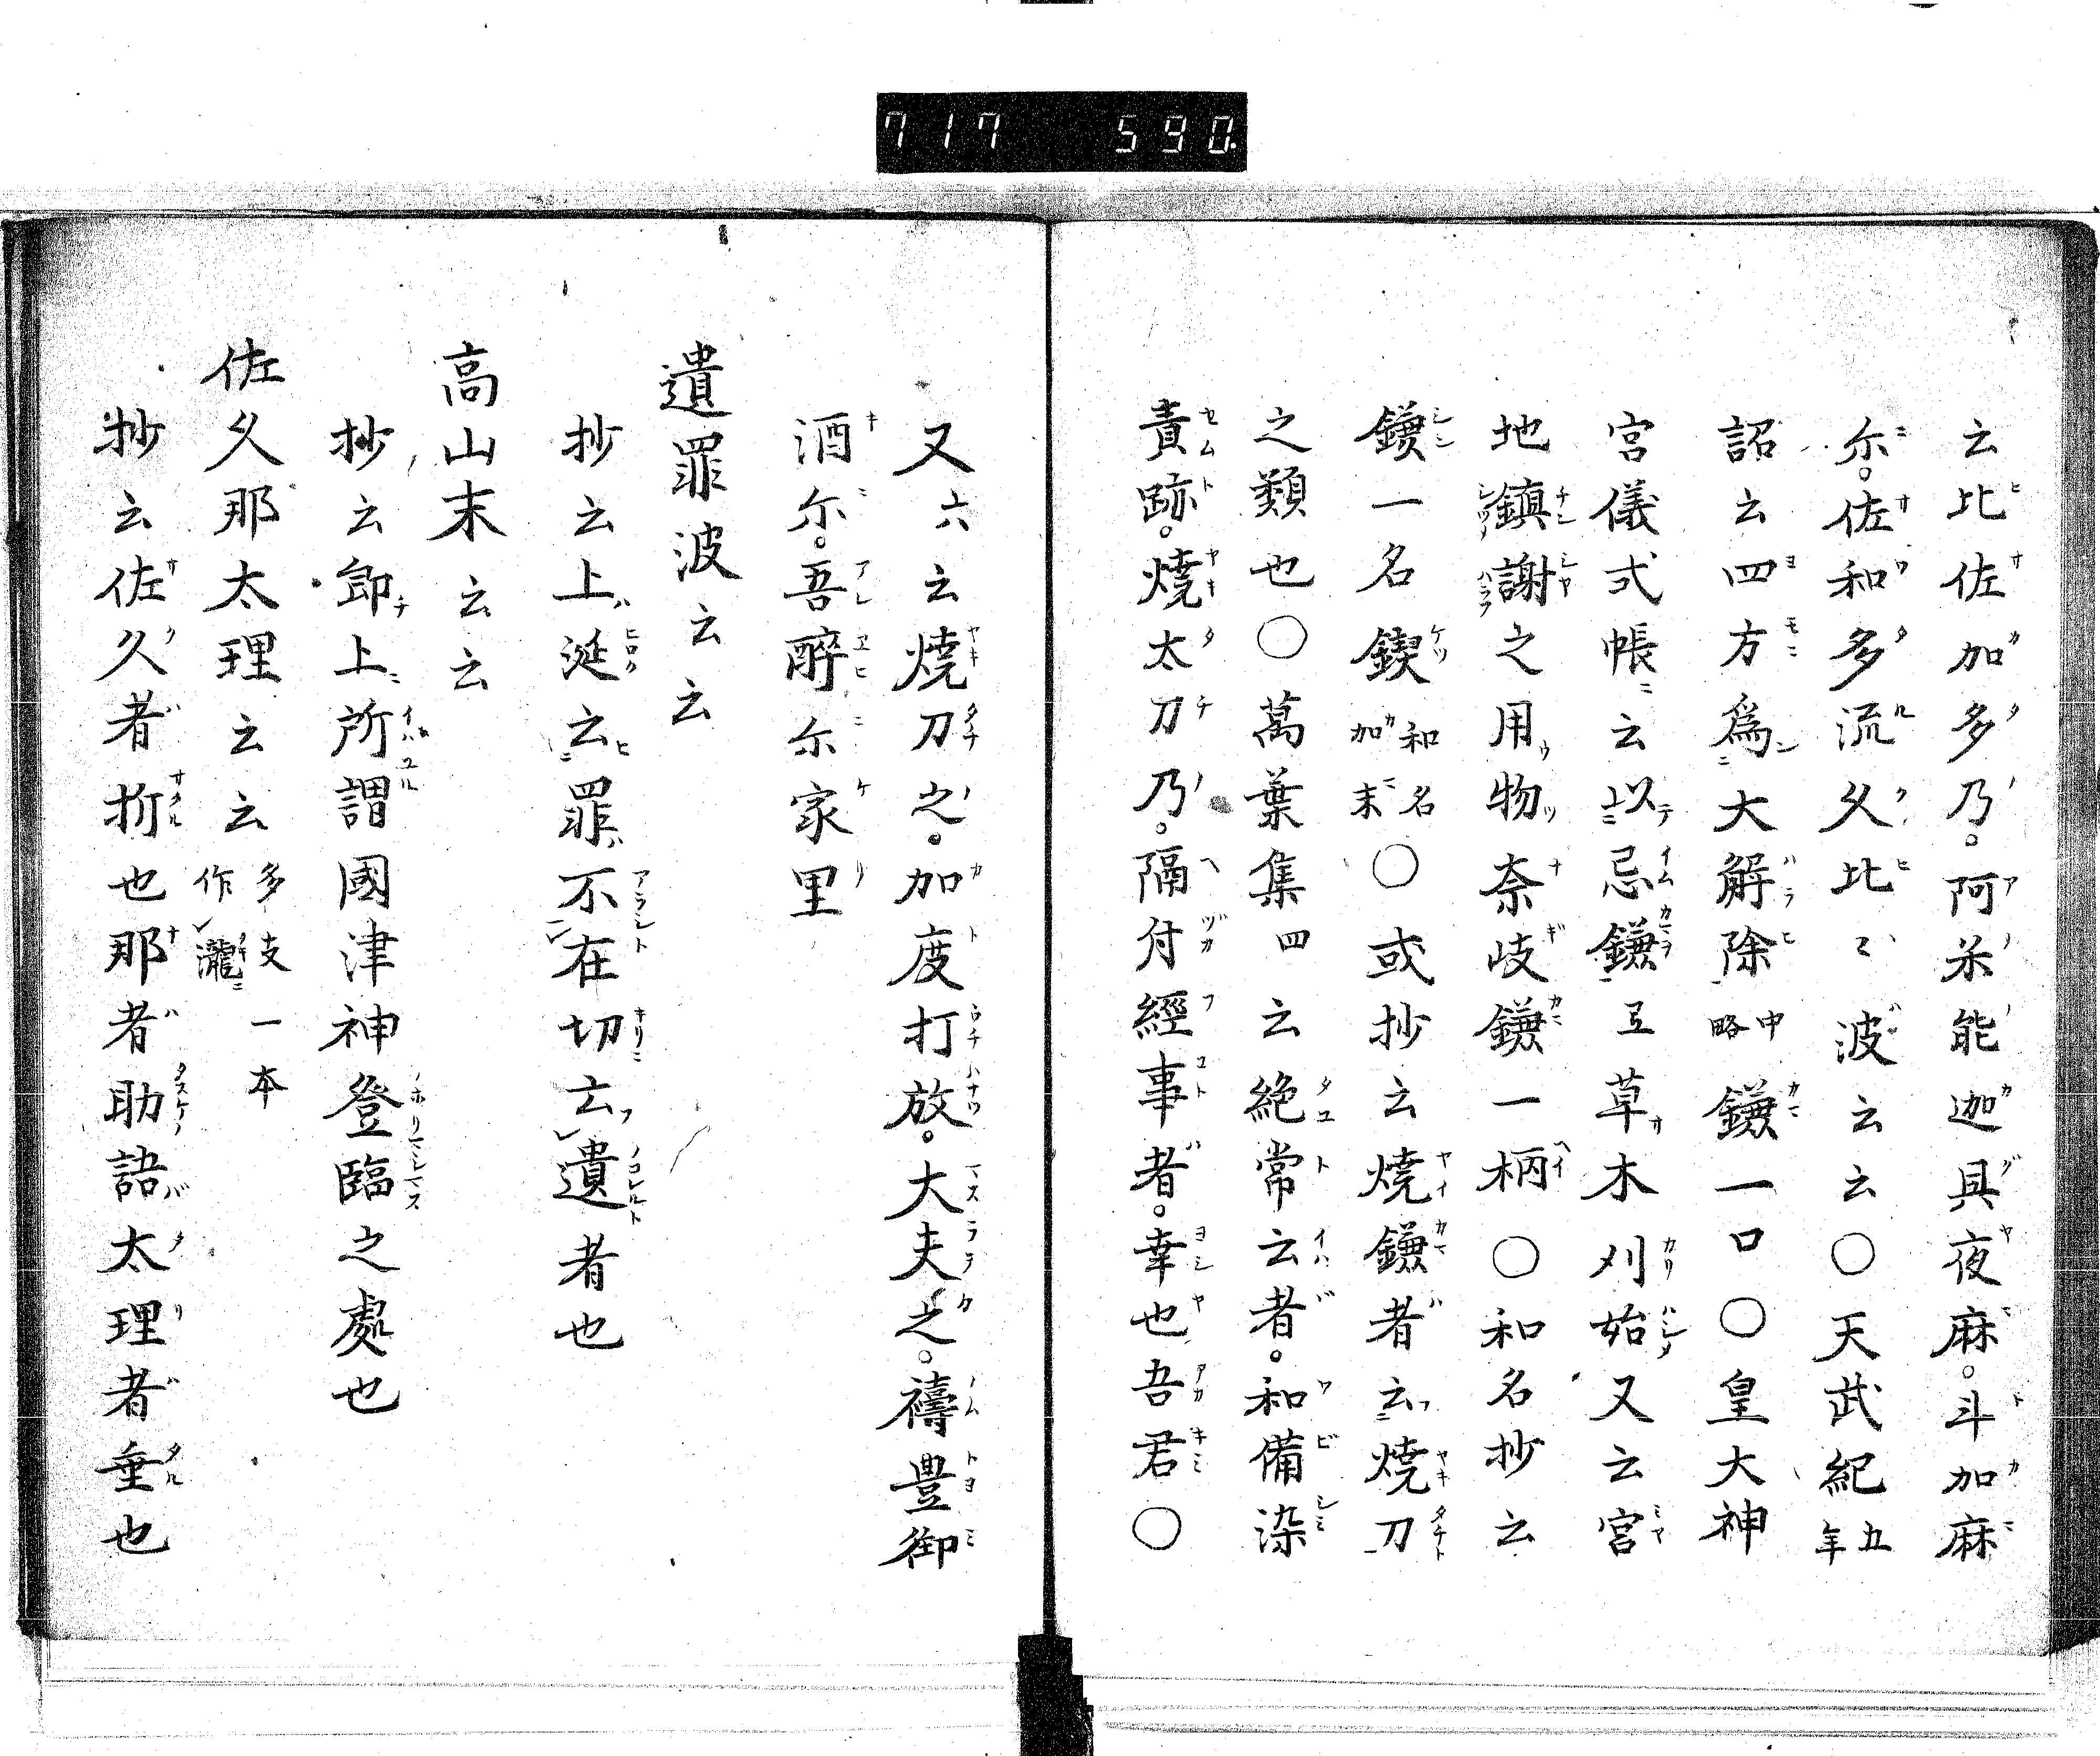 717 590
云比佐加多乃。阿米能迦具夜麻。斗加麻
尓。佐和多流久比〻波云云〇天武紀五年
詔云四方爲大解除中略鎌一口〇皇大神
宮儀式帳云以忌鎌弖草木刈始又云宮
地鎮謝之用物奈岐鎌一柄〇和名抄云
鎌一名鍥和名加末〇或抄云燒鎌者云燒刀
之類也〇萬葉集四云絶常云者。和備染
責跡。燒太刀乃。隔付經事者。幸也吾君〇
又六云燒刀之。加度打放。大夫之。禱豊御
酒尓。吾醉尓家里
遺罪波云云
抄云上涎云罪不在切云遺者也
高山末云云
抄云卽上所謂國津神登臨之處也
佐久那太理云云多支一本作瀧
抄云佐久者折也那者助語太理者垂也